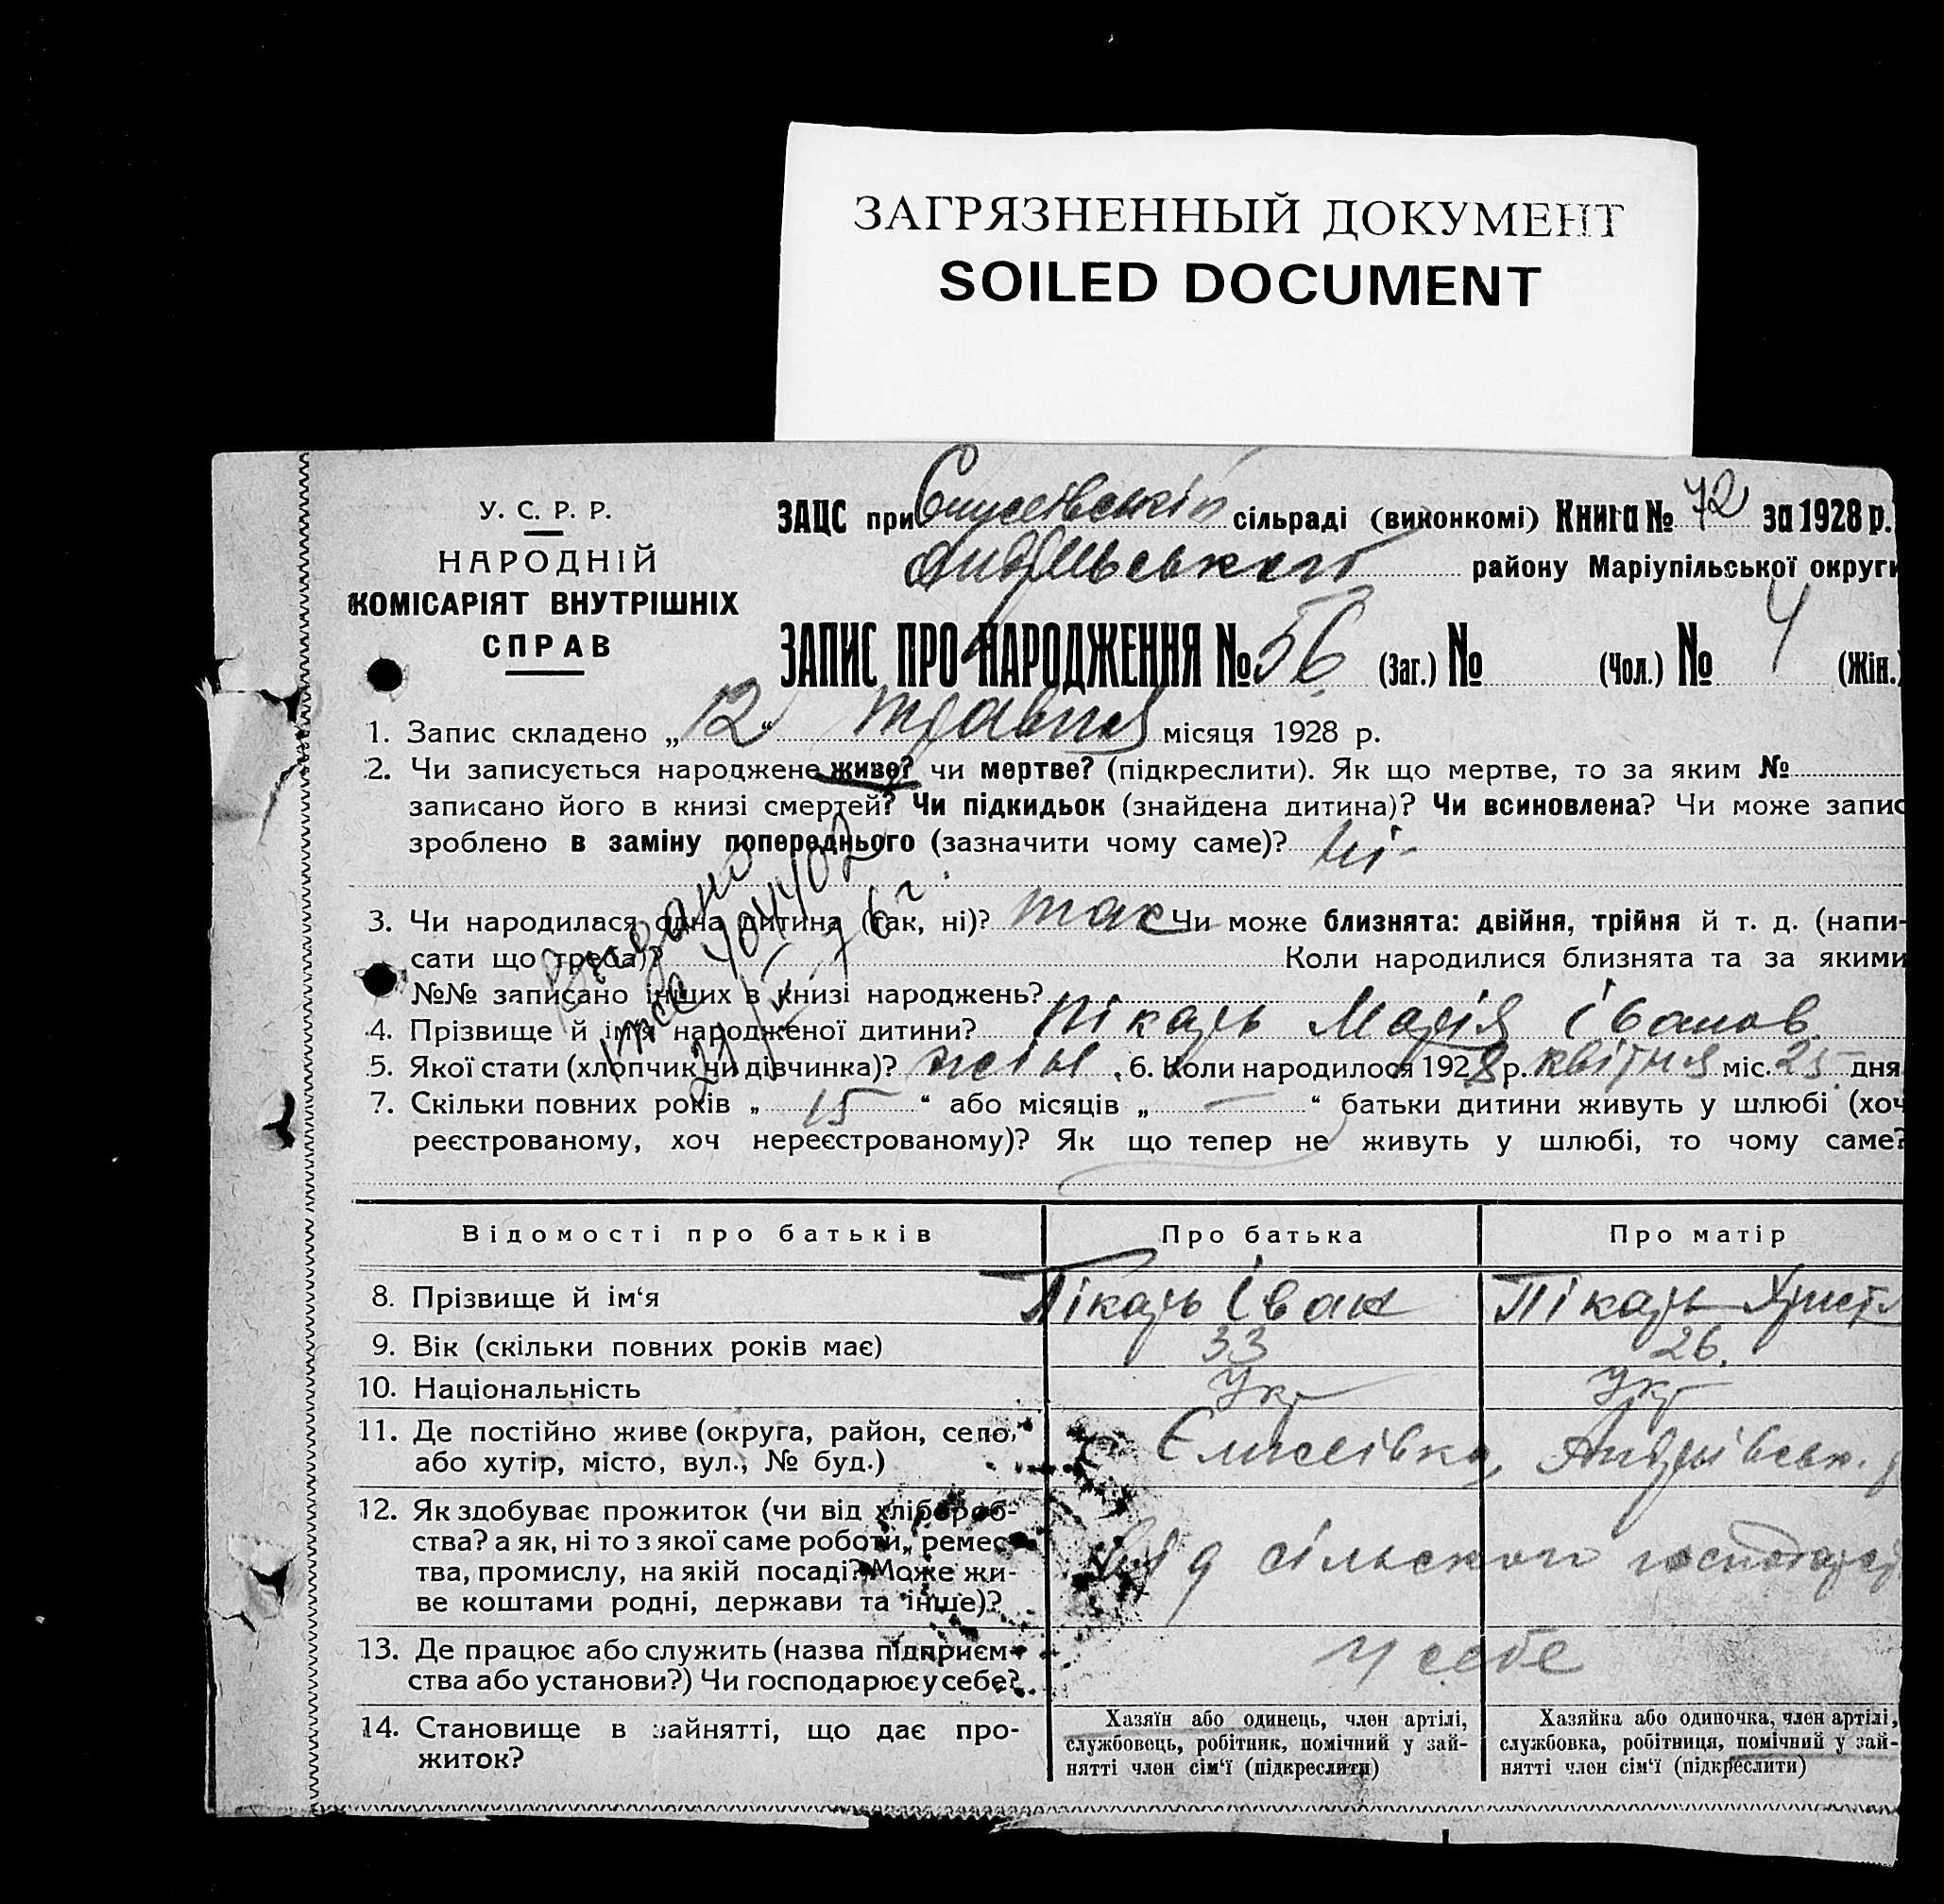 ЗАГРЯЗНЕННЫЙ ДОКУМЕНТ
SOILED DOCUMENT
У. С. Р. Р.
НАРОДНІЙ
КОМІСАРІЯТ ВНУТРІШНІХ
СПРАВ
ЗАЦС при сільраді (виконкомі) Книга № 72 за 1928 р.
району Маріупільської округи
ЗАПИС ПРО НАРОДЖЕННЯ № 56 (Заг.) № (Чол.) № (Жін.)
1. Запис складено „ 12 “ травня місяця 1928 р.
2. Чи записується народжене живе? чи мертве? (підкреслити). Як що мертве, то за яким №
записано його в книзі смертей? Чи підкидьок (знайдена дитина)? Чи всиновлена? Чи може запис
зроблено в заміну попереднього (зазначити чому саме)? ні
3. Чи народилася одна дитина (так, ні)? так Чи може близнята: двійня, трійня й т. д. (напи-
сати що треба)? Коли народилися близнята та за якими
№№ записано інших в книзі народжень?
4. Прізвище й ім'я народженої дитини? Пікарь Марія Іванов
5. Якої стати (хлопчик чи дівчинка)? жін. 6. Коли народилося 1928 р. квітня міс. 25 дня
7. Скільки повних років „ 15 “ або місяців „ — “ батьки дитини живуть у шлюбі (хоч
реєстрованому, хоч нереєстрованому)? Як що тепер не живуть у шлюбі, то чому саме?
Відомості про батьків Про батька Про матір
8. Прізвище й ім‘я Пікарь Іван Пікарь
9. Вік (скільки повних років має) 33 26.
10. Національність Укр Укр
11. Де постійно живе (округа, район, село,
або хутір, місто, вул., № буд.) с. Єлисеівка, Андріївськ. р
12. Як здобуває прожиток (чи від хлібороб-
ства? а як, ні то з якої саме роботи, ремес-
тва, промислу, на якій посаді? Може жи-
ве коштами родні, держави та інше)? Від сільского
13. Де працює або служить (назва підприєм-
ства або установи?) Чи господарює у себе? у себе
14. Становище в зайнятті, що дає про-
житок?
Хазяїн або одинець, член артілі,
службовець, робітник, помічний у зай-
нятті член сім‘ї (підкреслити)
Хазяйка або одиночка, член артілі,
службовка, робітниця, помічний у зай-
нятті член сім‘ї (підкреслити)